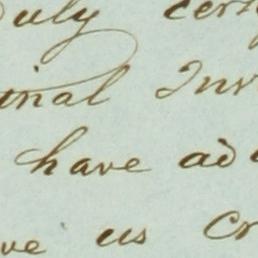 Duly cer
inal Inv
have ad
ve us cr